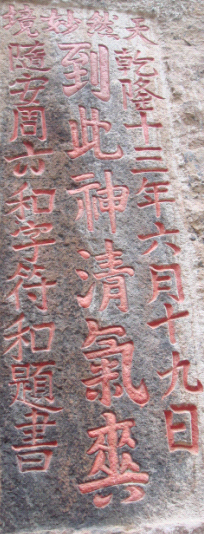 天然妙境
乾隆十三年六月十九日
到此神清氣爽
隨安周六和字符和題書